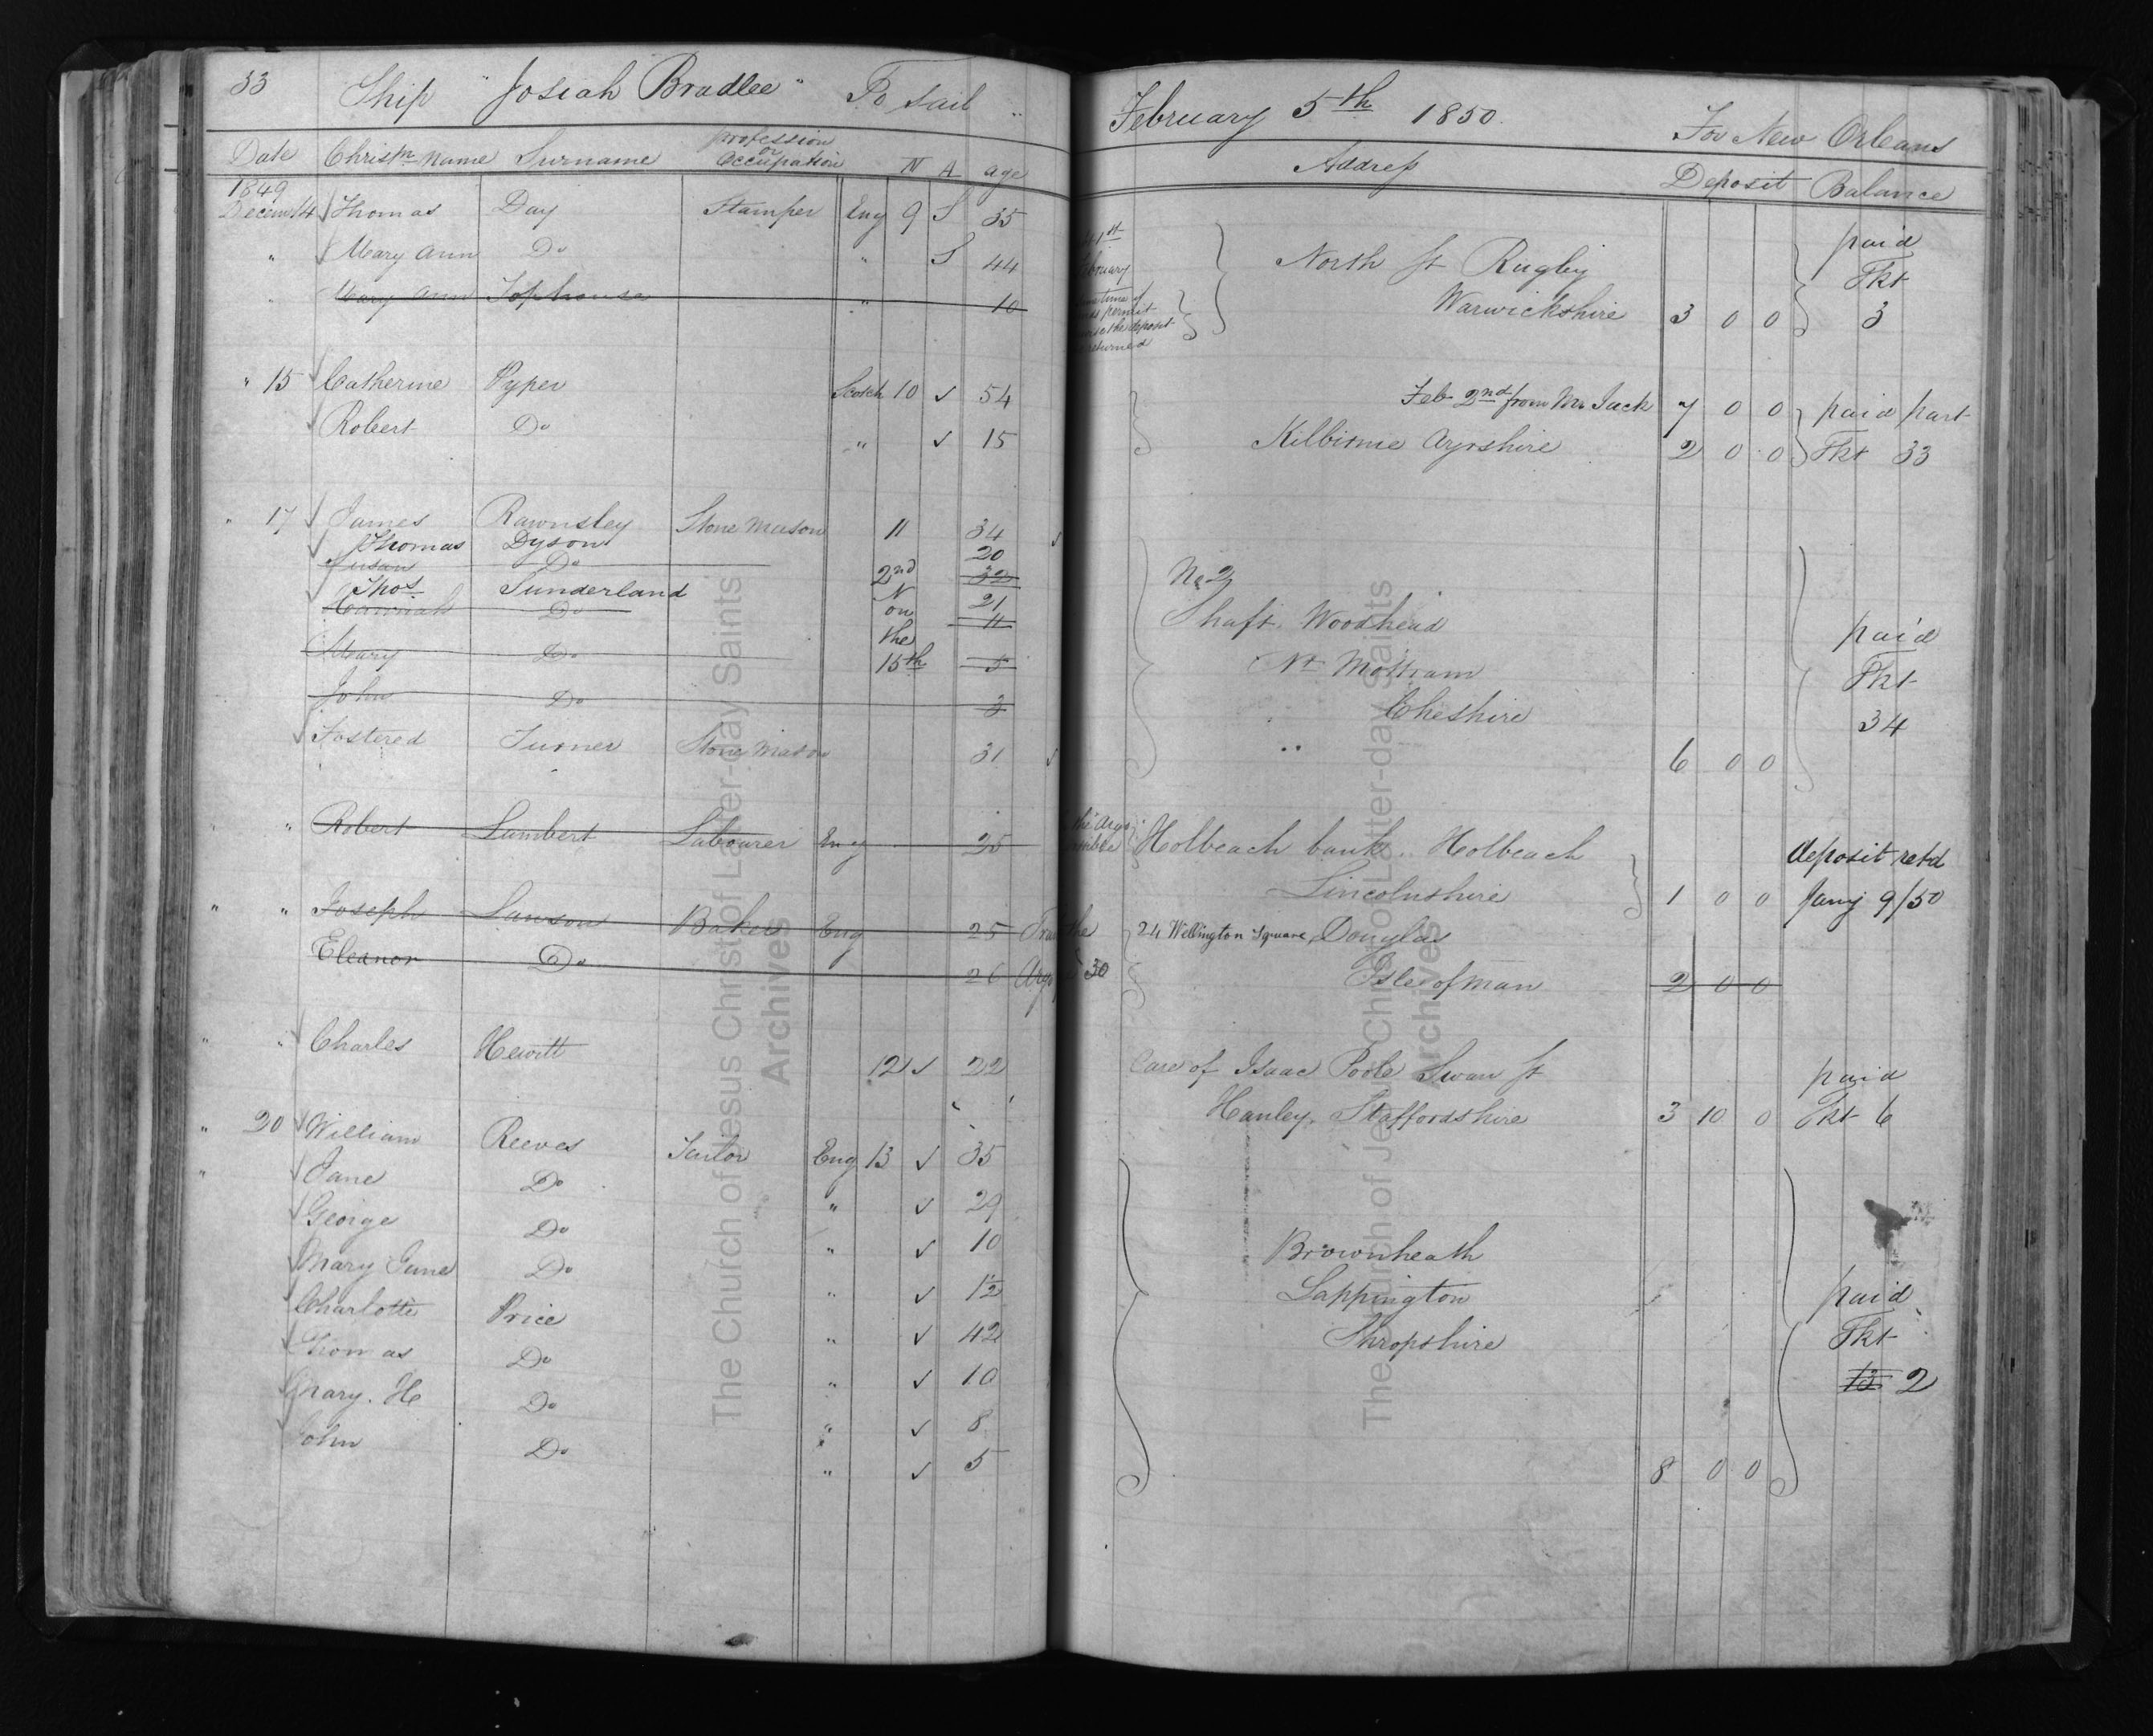 33 Ship "Josiah Bradlee" To Sail
Date Christn Name Surname Profession or Occupation N A age
1849
Decem 14 Thomas Day Stamper Eng 9 S 35
" Mary Ann Do " S 44
" Mary Ann Tophouse " 10
" 15 Catherine Pyper Scotch 10 ✓ 54
Robert Do " ✓ 15
" 17 James Rawnsley Stone Mason 11 34
Thomas Dyson 20
Susan Do 2nd 32
Thos Sunderland N 21
Hannah Do on 11
the
Mary Do 15th 5
John Do 3
Fostered Turner Stone Mason 31
" " Robert Lambert Labourer Eng 25
" " Joseph Lawson Baker Eng 25
Eleanor Do 26
" " Charles Hewitt 12 ✓ 22
" 20 William Reeves Tailor Eng 13 ✓ 35
" Jane Do " ✓ 29
George Do " ✓ 10
Mary Jane Do " ✓ 1½
Charlotte Price " ✓ 42
Thomas Do " ✓ 10
Mary. H Do " ✓ 8
John Do " ✓ 5
The Church of Jesus Christ of Latter-day Saints
Archives
February 5th 1850. For New Orleans
Address Deposit Balance
North St Rugby paid
Tkt
Warwickshire 3 0 0 3
permit
the deposit
returned
Feb 2nd from Mr Jack 7 0 0 paid part
Kilbirnie Ayrshire 2 0 0 Tkt 33
No 2
Shaft. Woodhead paid
Nr Mottram Tkt
Cheshire 34
" 6 0 0
Holbeach bank. Holbeach deposit retd
Lincolnshire 1 0 0 Jany 9/50
24 Wellington Square, Douglas
30 Isle of Man 2 0 0
Care of Isaac Poole Swan St paid
Hanley. Staffordshire 3 10 0 Tkt 6
Brownheath
Lappington paid
Shropshire Tkt
13 2
8 0 0
The Church of Jesus Christ of Latter-day Saints
Archives